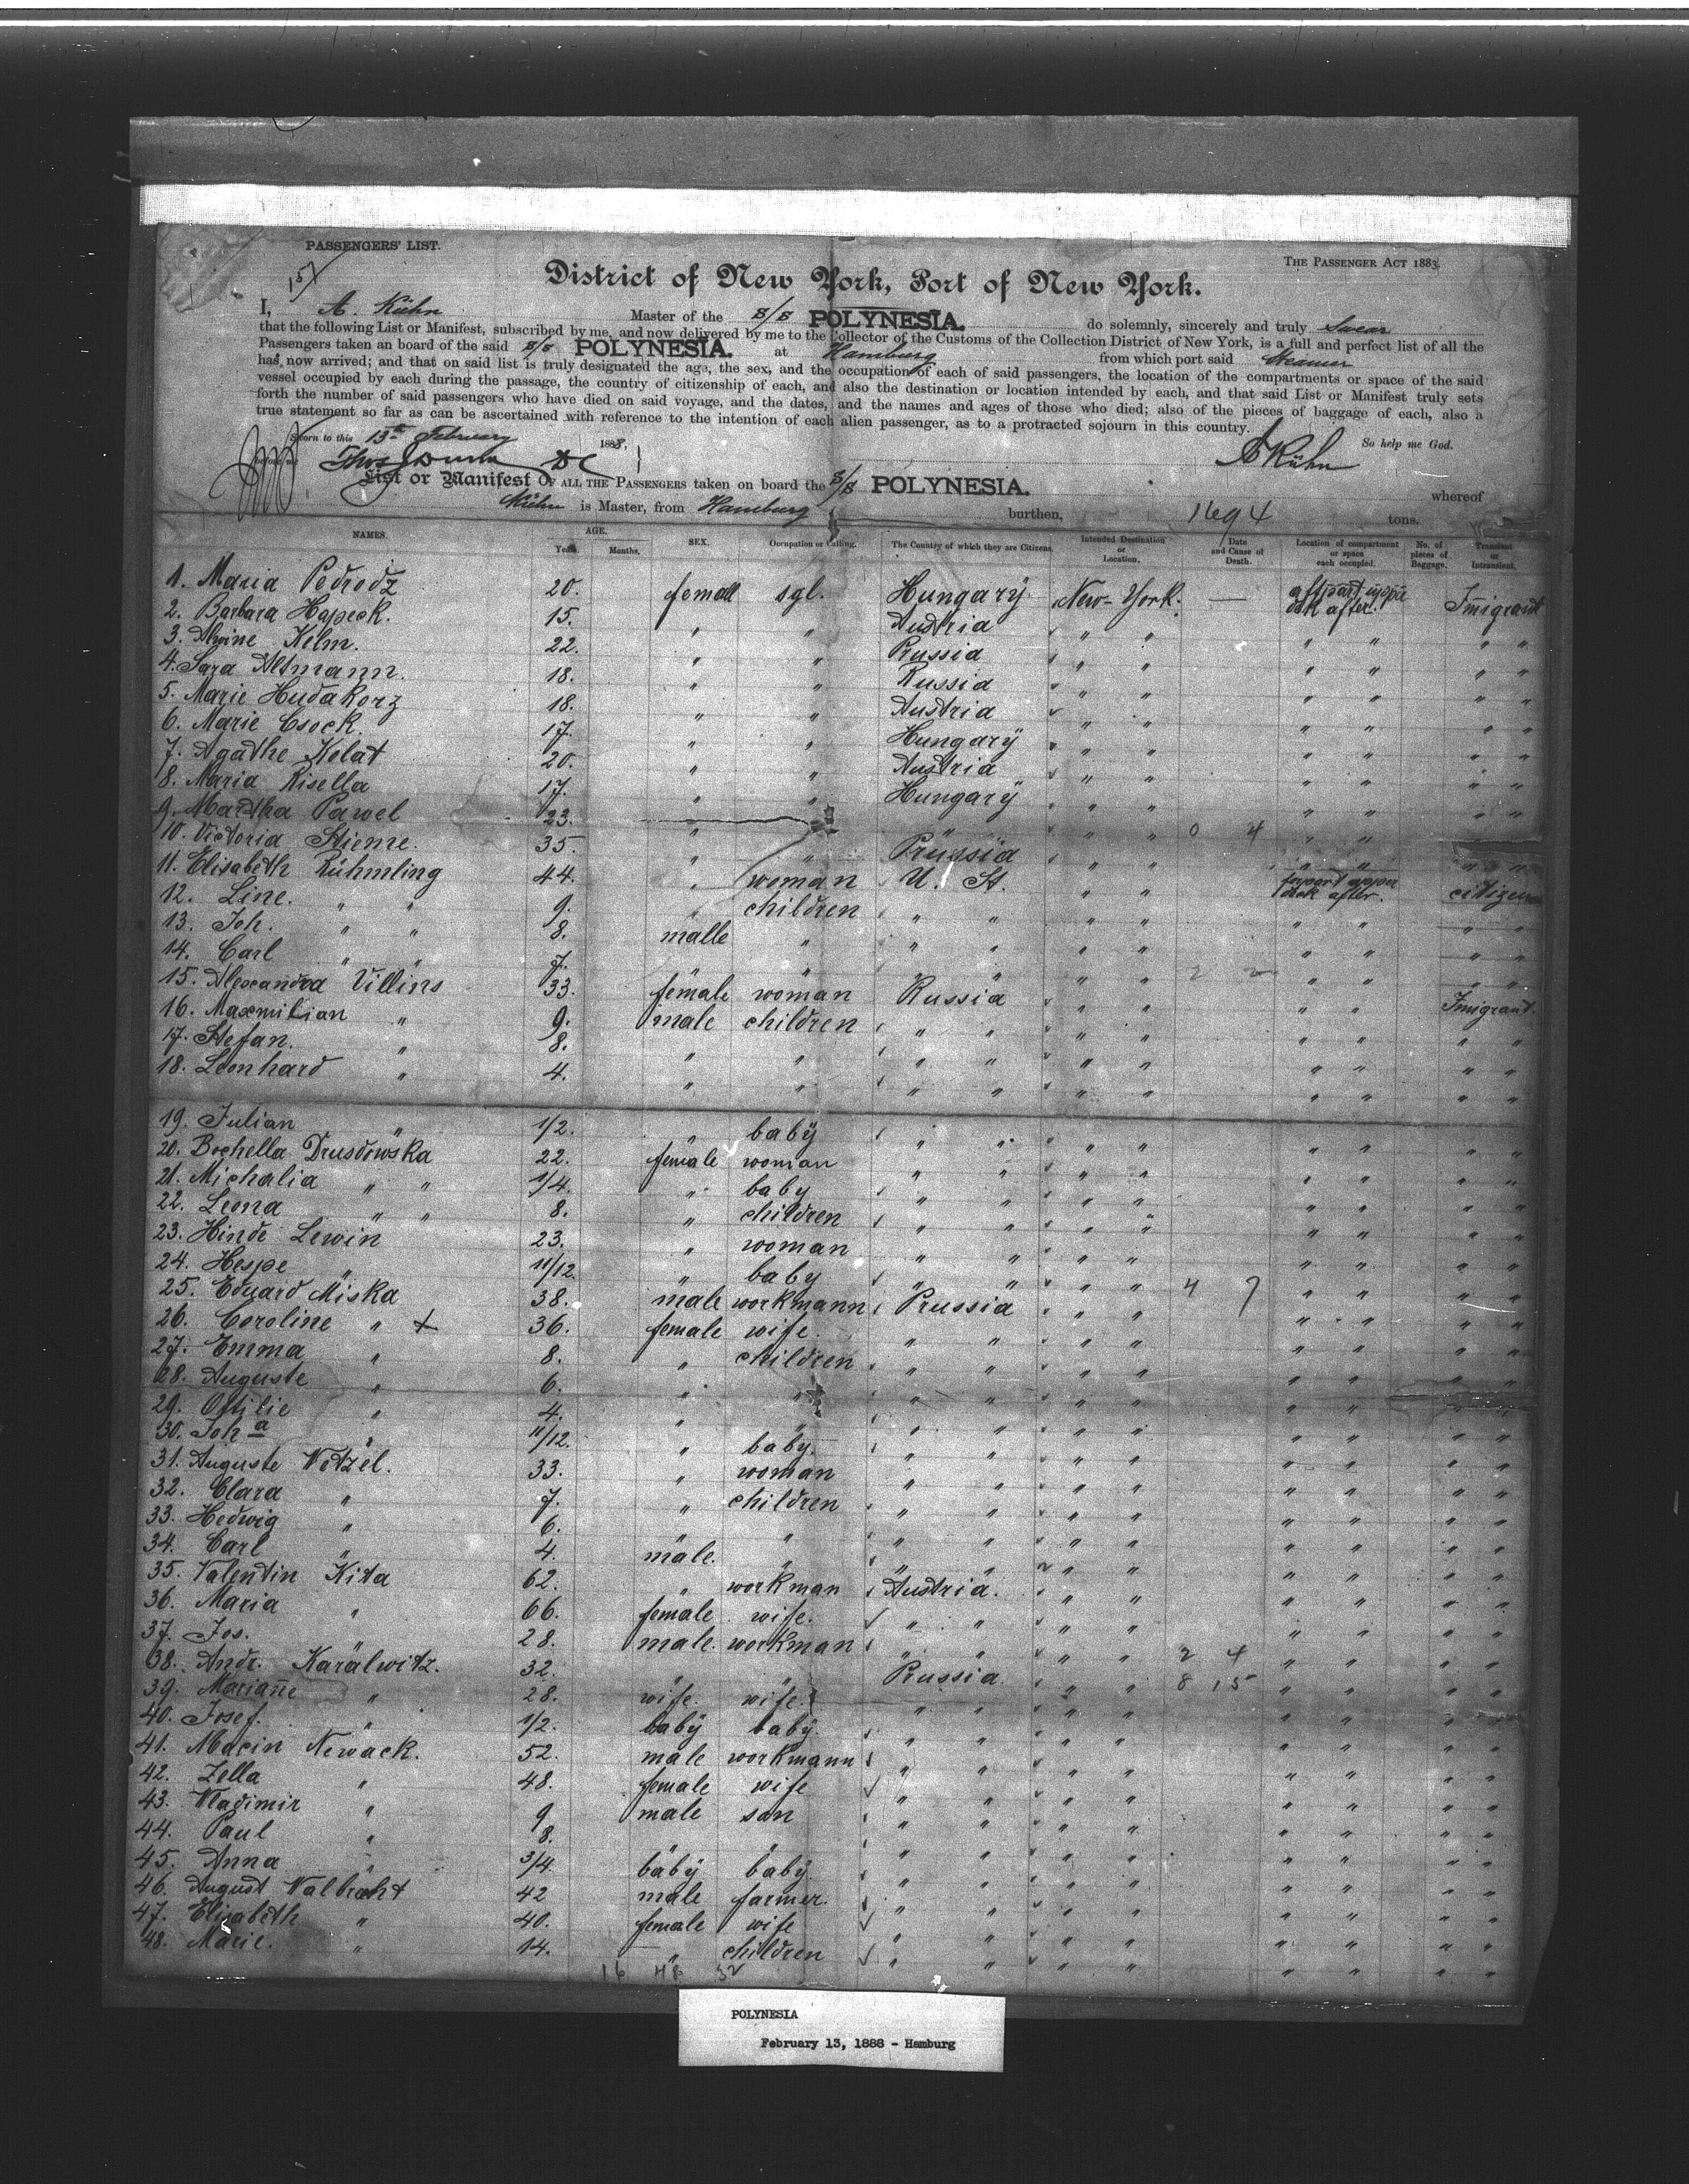 PASSENGERS' LIST.
THE PASSENGER ACT 1883.
157
District of New York, Port of New York.
I, A. Kühn Master of the S/S POLYNESIA. do solemnly, sincerely and truly Swear
that the following List or Manifest, subscribed by me, and now delivered by me to the Collector of the Customs of the Collection District of New York, is a full and perfect list of all the
Passengers taken an board of the said S/S POLYNESIA. at Hamburg from which port said Steamer
has now arrived; and that on said list is truly designated the age, the sex, and the occupation of each of said passengers, the location of the compartments or space of the said
vessel occupied by each during the passage, the country of citizenship of each, and also the destination or location intended by each, and that said List or Manifest truly sets
forth the number of said passengers who have died on said voyage, and the dates, and the names and ages of those who died; also of the pieces of baggage of each, also a
true statement so far as can be ascertained with reference to the intention of each alien passenger, as to a protracted sojourn in this country.
Sworn to this 13th February 1888, So help me God.
before me Thos Dunn DC A Kühn
List or Manifest OF ALL THE PASSENGERS taken on board the S/S POLYNESIA. whereof
Kühn is Master, from Hamburg burthen, 1694 tons.
NAMES. AGE. Years. Months. SEX. Occupation or Calling. The Country of which they are Citizens. Intended Destination or Location. Date and Cause of Death. Location of compartment or space each occupied. No. of pieces of Baggage. Transient or Intransient.
1. Maria Pedrodz 20. female sgl. Hungarÿ New-York. — aftpart upper dek after. Imigrant
2. Barbara Hapeck. 15. " " Austria " " " " " "
3. Alwine Kelm. 22. " " Prussia " " " " " "
4. Sara Altmann. 18. " " Russia " " " " " "
5. Marie Hudakorz 18. " " Austria " " " " " "
6. Marie Csock. 17. " " Hungarÿ " " " " " "
7. Agathe Kolat 20. " " Austria " " " " " "
8. Maria Risella 17. " " Hungarÿ " " " " " "
9. Martha Pawel 23. " " " " " 0 4 " " " "
10. Victoria Stieme. 35. " " Prussia " " " " " "
11. Elisabeth Rühmling 44. " woman U. St. " " forpart upper dek after. citizen
12. Line. " " 9. " children " " " " " " " "
13. Joh. " " 8. malle " " " " " " " " "
14. Carl " " 7. " " " " " 2 2 " " " "
15. Alexandra Villins 33. female woman Russia " " " " Imigrant.
16. Maxmilian " 9. male children " " " " " " " "
17. Stefan. " 8. " " " " " " " " " "
18. Leonhard " 4. " " " " " " " " " "
19. Julian " 1/2. " babÿ " " " " " " " "
20. Bochella Drusdowska 22. female woman " " " " " " " "
21. Michalia " " 1/4. " baby " " " " " " " "
22. Leona " " 8. " children " " " " " " " "
23. Hinde Lewin 23. " woman " " " " " " " "
24. Hespe " 11/12. " baby " " " " " " " "
25. Eduard Miska 38. male workmann Prussia " " 4 7 " " " "
26. Coroline " + 36. female wife. " " " " " " " "
27. Emma " 8. " children " " " " " " " "
28. Auguste " 6. " " " " " " " " " "
29. Ottilie " 4. " " " " " " " " " "
30. Joh a " 11/12. " baby. " " " " " " " "
31. Auguste Wetzel. 33. " woman " " " " " " " "
32. Clara " 7. " children " " " " " " " "
33. Hedwig " 6. " " " " " " " " " "
34. Carl " 4. male. " " " " " " " " "
35. Valentin Kita 62. " workman Austria. " " " " " "
36. Maria " 66. female wife. " " " " " " " "
37. Jos. " 28. male. workman " " " " 2 4 " " " "
38. Andr. Karalwitz. 32. " " Prussia. " " 8 15 " " " "
39. Mariañe " 28. wife. wife. " " " " " " " "
40. Josef. " 1/2. babÿ baby. " " " " " " " "
41. Macin Newack. 52. male workmann " " " " " " " "
42. Zella " 48. female wife " " " " " " " "
43. Wladimir " 9 male son " " " " " " " "
44. Paul " 8. " " " " " " " " " "
45. Anna " 3/4. babÿ babÿ " " " " " " " "
46. August Walbracht 42 male farmer. " " " " " " " "
47. Elisabeth " 40. female wife " " " " " " " "
48. Marie. " 14. " children " " " " " " " "
16 48 32
POLYNESIA
February 13, 1888 - Hamburg